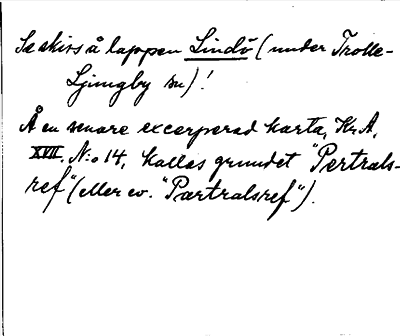 Se skiss å lappen Lindö (under Trolle-
Ljungby sn)!
Å en senare excerperad karta, Kr. A,
XVII. N:o 14, kallas grundet "Pertrals-
ref" (eller ev. "Pærtralsref").